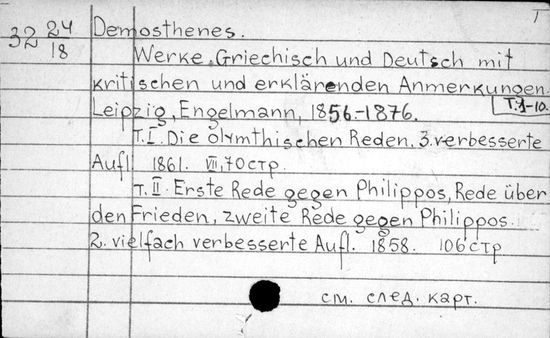 I
32 24/18
Demosthenes.
Werke, Griechisch und Deutsch mit
kritischen und erklärenden Anmerkungen.
Leipzig, Engelmann, 1856-1876.
T.1-10.
T.I. Die olymthischen Reden. 3. verbesserte
Aufl 1861. VII, 70 стр.
T.II. Erste Rede gegen Philippos, Rede über
den Frieden, zweite Rede gegen Philippos.
2. vielfach verbesserte Aufl. 1858. 106 стр
см. след. карт.